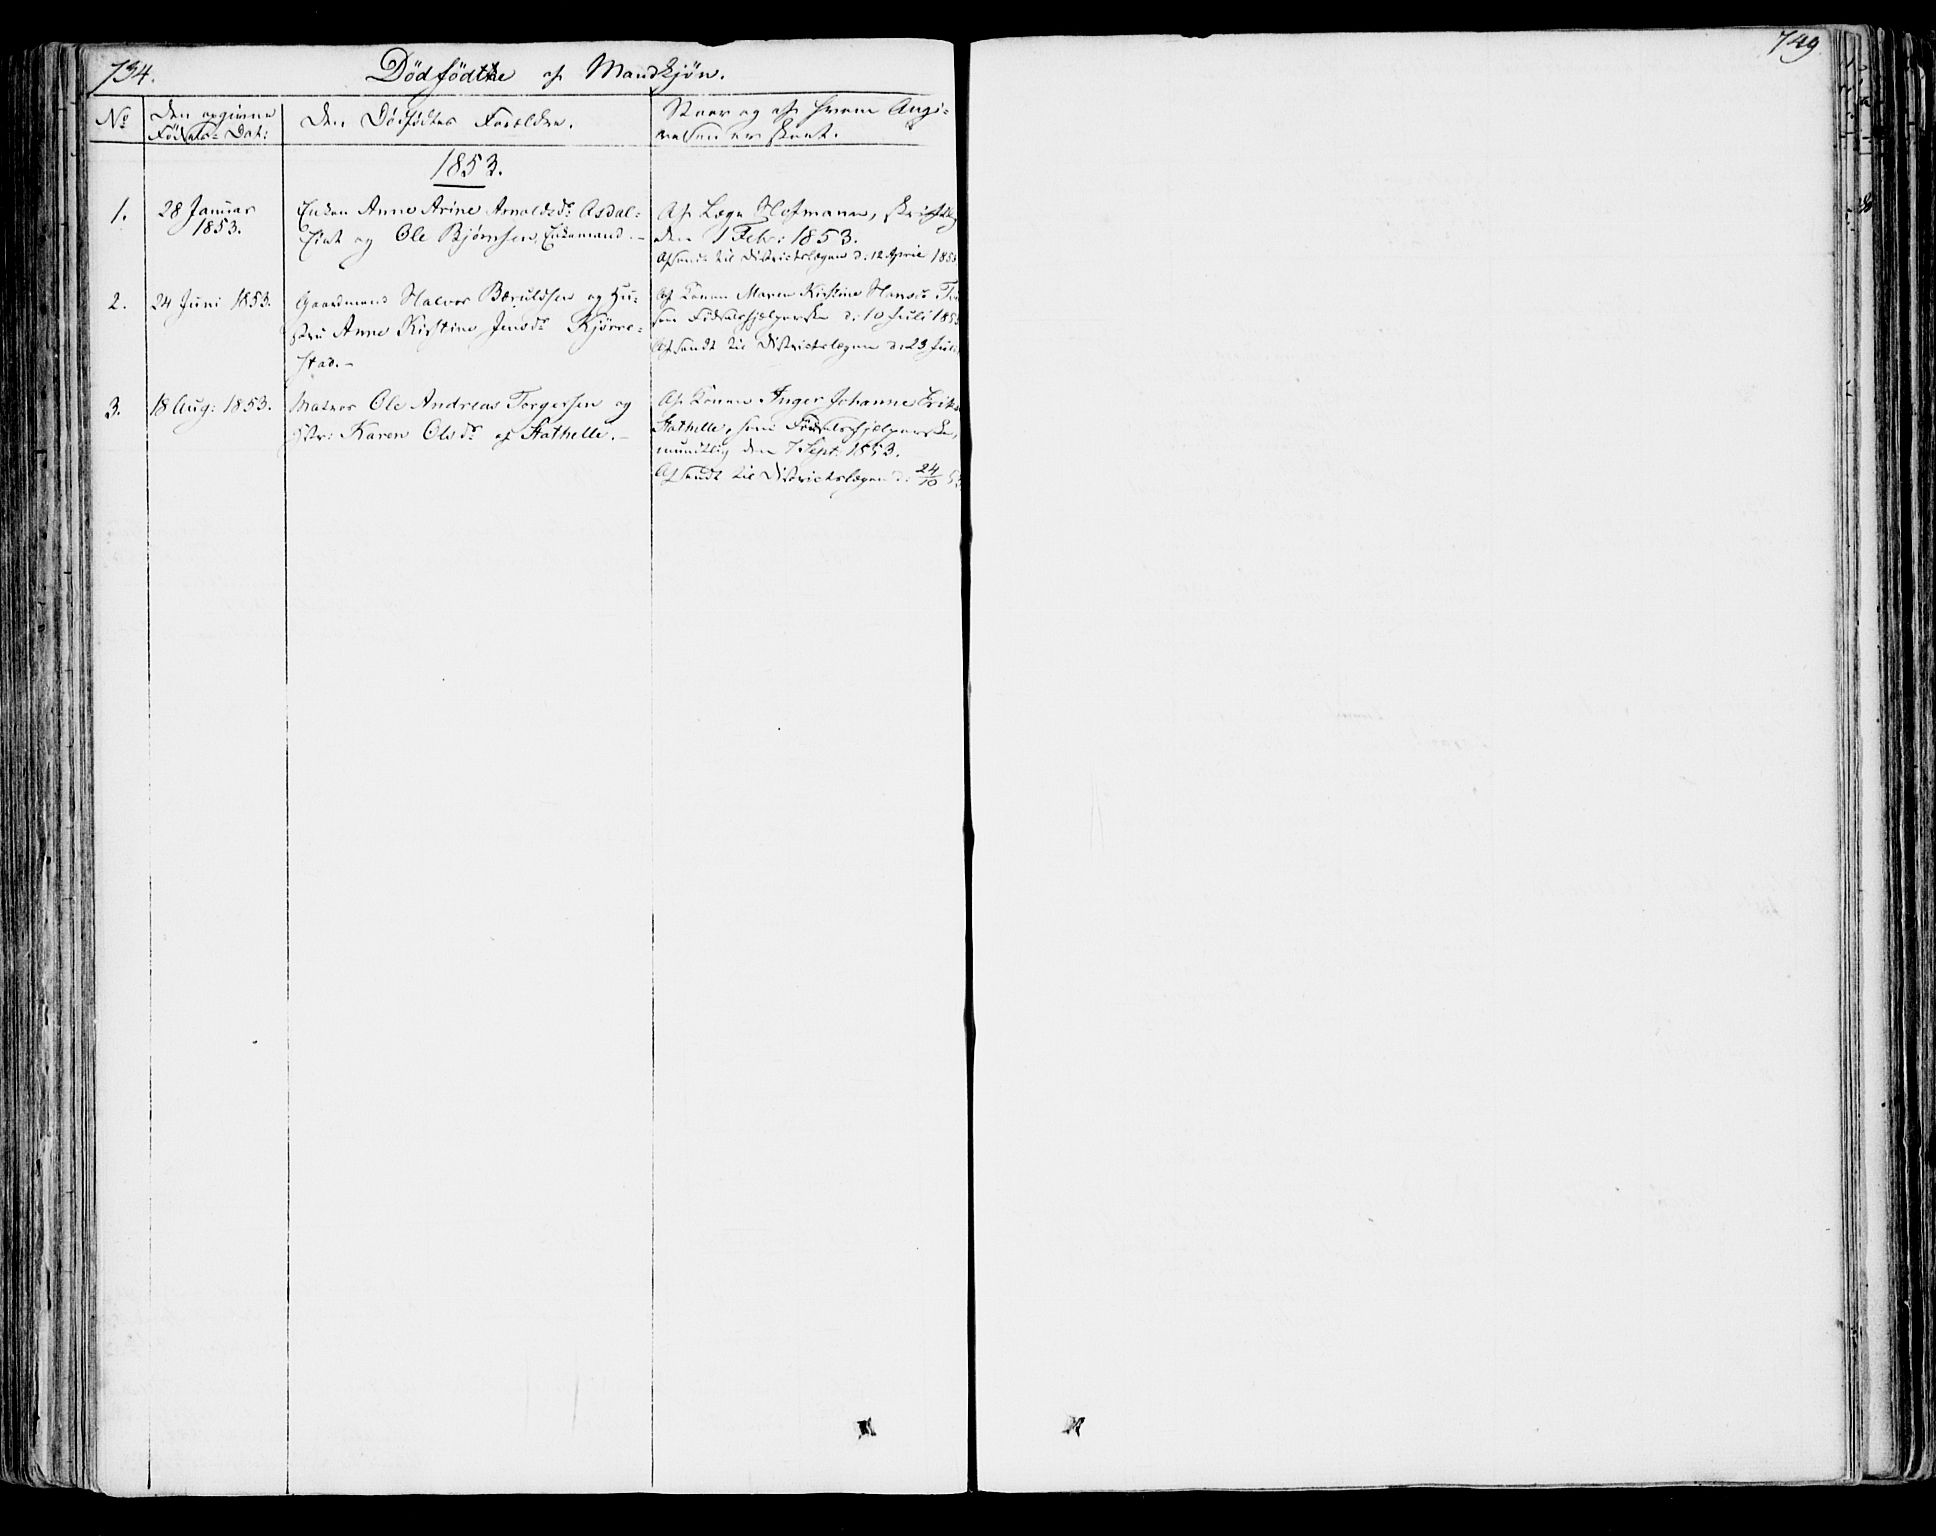 734.
Dødfødte af Mandkjøn.
749
No
Den opgivne
Fødsels-Dat:
Den Dødfødtes Forældre.
Naar og af hvem Angi-
velsen er skeet.
1853.
1.
28 Januar
1853.
Enken Anne Arine Arnoldsd: Asdal-
og Ole Bjørnsen, Enkemand.-
Af Læge Hofmann, skriftlig
den 1 Feb: 1853.
Afsendt til Districtslægen d: 12 April 1853
2.
24 Juni 1853.
Gaardmand Halvor Bæruldsen og Hu-
stru Anne Kirstine Jensd: Kjørre-
stad.-
Af Konen Maren Kirstine Hansd:
som Fødselshjelperske d: 10 Juli 1853
Afsendt til Districtslægen d: 23 Juli
3.
18 Aug: 1853.
Matros Ole Andreas Torgersen og
Hstr: Karen Olsd: af Stathelle.-
Af Konen Inger Johanne Eriks
Stathelle, som Fødselshjelperske,
mundtlig den 7 Sept: 1853.
Afsendt til Districtslægen d: 24/10 53